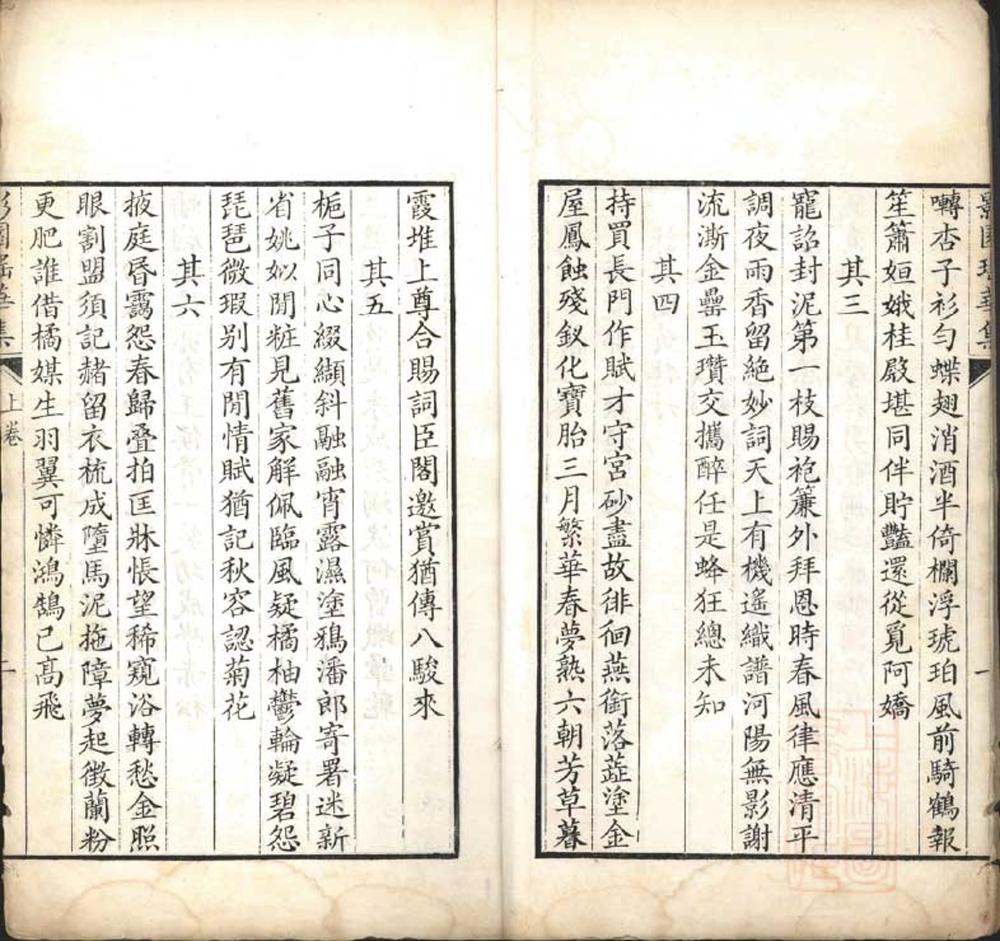 影園瑤華集
一
囀杏子衫勻蝶翅消酒半倚欄浮琥珀風前騎鶴報
笙簫姮娥桂殿堪同伴貯豔還從覓阿嬌
其三
寵詔封泥第一枝賜袍簾外拜恩時春風律應清平
調夜雨香留絕妙詞天上有機遙織譜河陽無影謝
流澌金罍玉瓚交攜醉任是蜂狂總未知
其四
持買長門作賦才守宮砂盡故徘徊燕銜落蕋塗金
屋鳳蝕殘釵化寶胎三月繁華春夢熟六朝芳草暮
霞堆上尊合賜詞臣閣邀賞猶傳八駿來
其五
梔子同心綴纈斜融融宵露濕塗鴉潘郎寄署迷新
省姚姒閒粧見舊家解佩臨風疑橘柚鬱輪凝碧怨
琵琶微瑕別有閒情賦猶記秋容認菊花
其六
掖庭昏靄怨春歸疊拍匡牀悵望稀窺浴轉愁金照
眼割盟須記赭留衣梳成墮馬泥拖障夢起徵蘭粉
更肥誰借橘媒生羽翼可憐鴻鵠已高飛
影園瑤華集
上卷
二